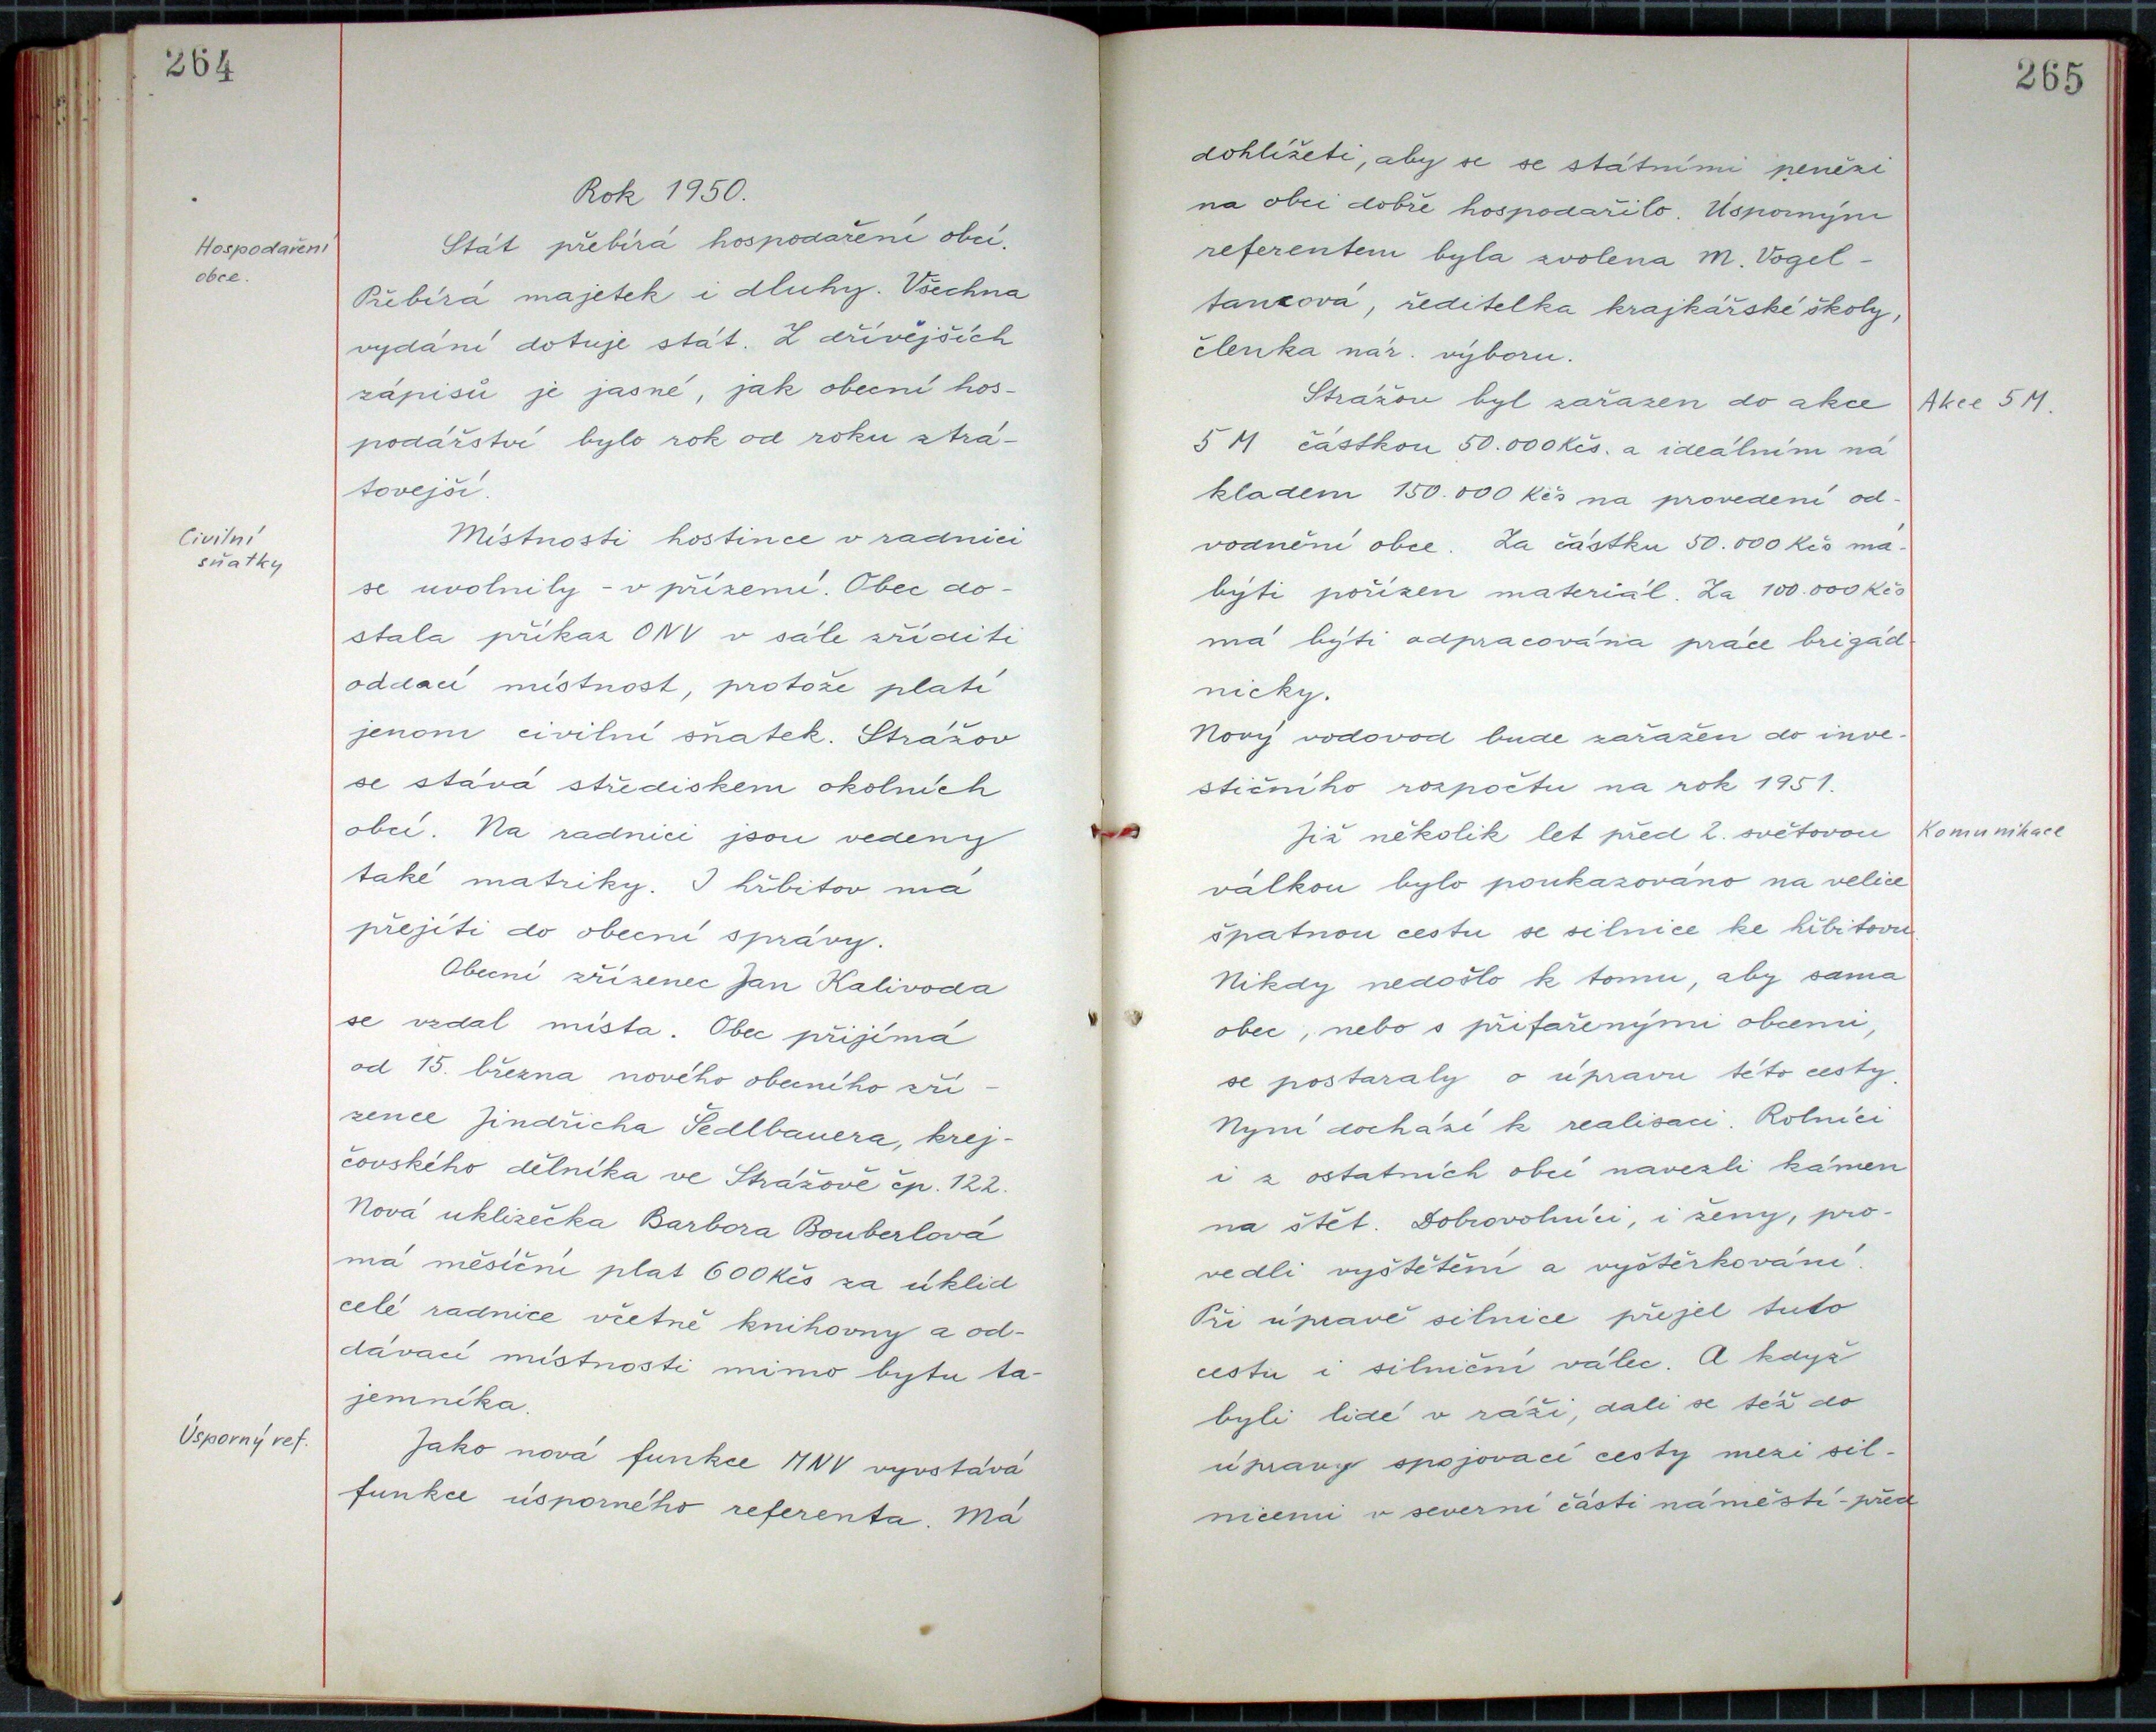 264
Rok 1950.
Hospodaření
obce.
Stát přebírá hospodaření obcí.
Přebírá majetek i dluhy. Všechna
vydání dotuje stát. Z dřívějších
zápisů je jasné, jak obecní hos-
podářství bylo rok od roku ztrá-
tovejší.
Civilní
sňatky
Místnosti hostince v radnici
se uvolnily - v přízemí. Obec do-
stala příkaz ONV v sále zříditi
oddací místnost, protože platí
jenom civilní sňatek. Strážov
se stává střediskem okolních
obcí. Na radnici jsou vedeny
také matriky. I hřbitov má
přejíti do obecní správy.
Obecní zřízenec Jan Kalivoda
se vzdal místa. Obec přijímá
od 15. března nového obecního zří-
zence Jindřicha Šedlbauera, krej-
čovského dělníka ve Strážově čp. 122.
Nová uklizečka Barbora Bouberlová
má měsíční plat 600 Kčs za úklid
celé radnice včetně knihovny a od-
dávací místnosti mimo bytu ta-
jemníka.
Úsporný ref.
Jako nová funkce MNV vyvstává
funkce úsporného referenta. Má
265
dohlížeti, aby se se státními penězi
na obci dobře hospodařilo. Úsporným
referentem byla zvolena M. Vogel-
tanzová, ředitelka krajkářské školy,
členka nár. výboru.
Strážov byl zařazen do akce
Akce 5 M.
5 M částkou 50.000 Kčs. a ideálním ná
kladem 150.000 Kčs na provedení od-
vodnění obce. Za částku 50.000 Kčs má-
býti pořízen materiál. Za 100.000 Kčs
má býti odpracována práce brigád-
nicky.
Nový vodovod bude zařazěn do inve-
stičního rozpočtu na rok 1951.
Již několik let před 2. světovou
Komunikace
válkou bylo poukazováno na velice
špatnou cestu se silnice ke hřbitovu.
Nikdy nedošlo k tomu, aby sama
obec, nebo s přifařenými obcemi,
se postaraly o úpravu této cesty.
Nyní dochází k realisaci. Rolníci
i z ostatních obcí navezli kámen
na štět. Dobrovolníci, i ženy, pro-
vedli vyštětění a vyštěrkování.
Při úpravě silnice přejel tuto
cestu i silniční válec. A když
byli lidé v ráži, dali se též do
úpravy spojovací cesty mezi sil-
nicemi v severní části náměstí - před